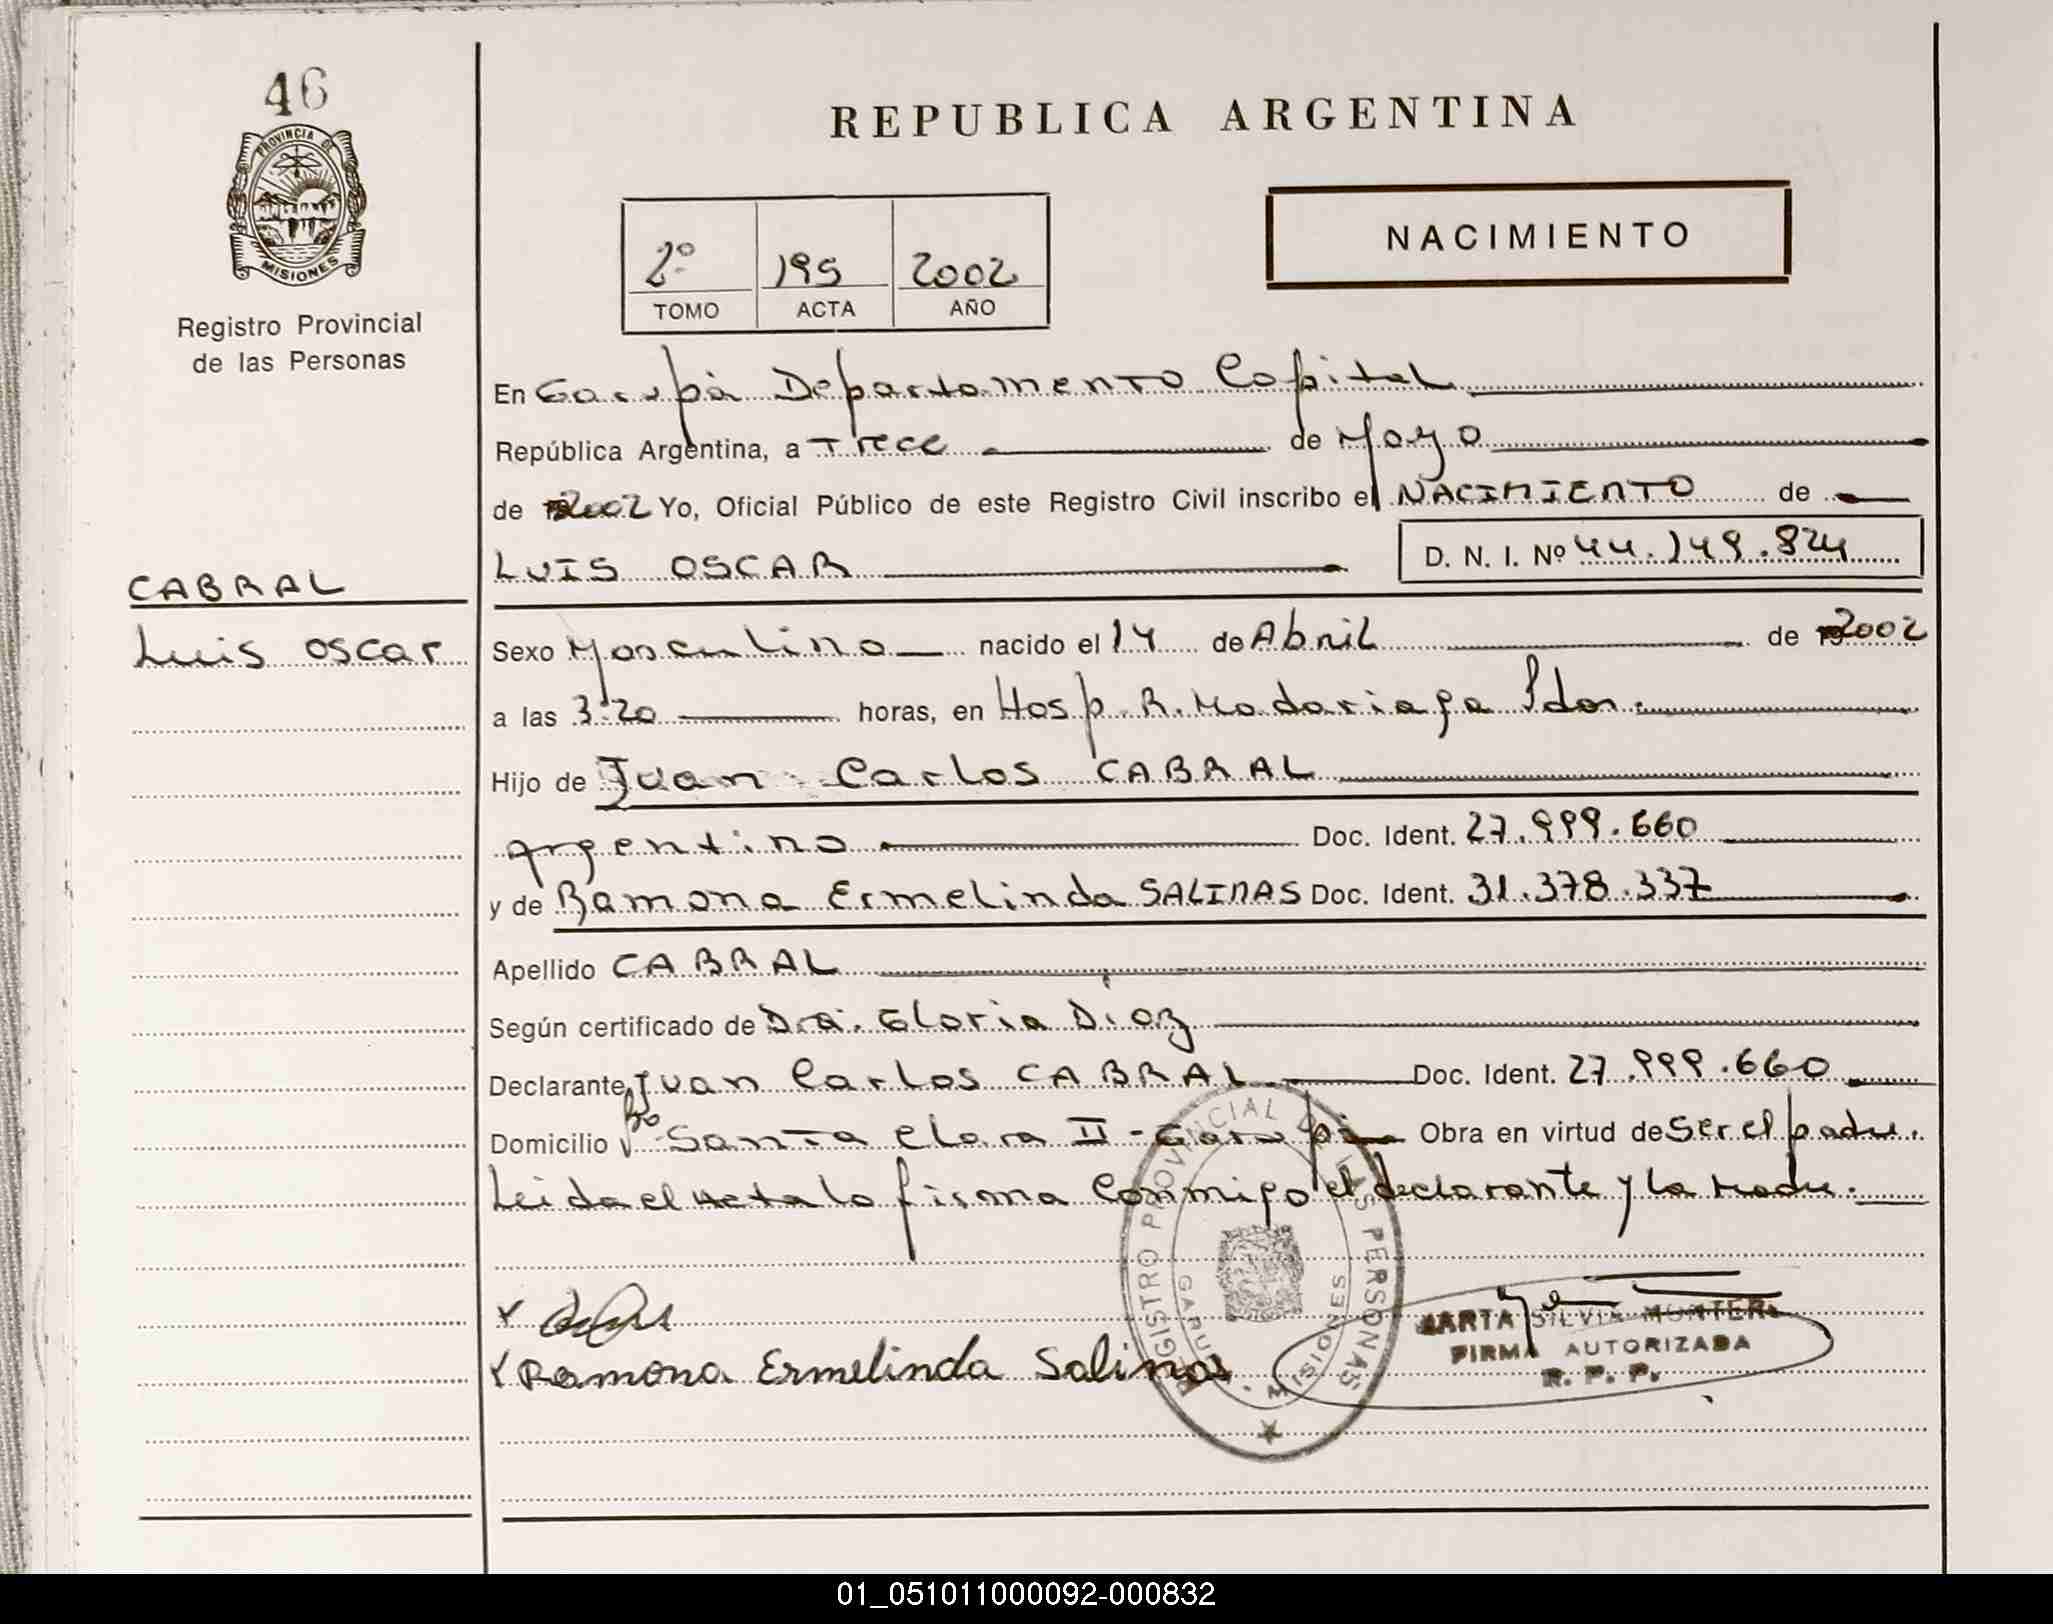 46
PROVINCIA DE
MISIONES
Registro Provincial
de las Personas
CABRAL
Luis Oscar
REPUBLICA ARGENTINA
NACIMIENTO
2º 195 2002
TOMO ACTA AÑO
En Garupá Departamento Capital
República Argentina, a Trece de Mayo
de 2002 Yo, Oficial Público de este Registro Civil inscribo el NACIMIENTO de
LUIS OSCAR D. N. I. Nº 44.149.824
Sexo Masculino nacido el 14 de Abril de 2002
a las 3:20 horas, en Hosp. R. Madariaga Pdas.
Hijo de Juan Carlos CABRAL
argentino Doc. Ident. 27.999.660
y de Ramona Ermelinda SALINAS Doc. Ident. 31.378.337
Apellido CABRAL
Según certificado de Dra. Gloria Diaz
Declarante Juan Carlos CABRAL Doc. Ident. 27.999.660
Domicilio Bo Santa Clara II - Garupá Obra en virtud de ser el padre.
Leida el Acta la firma conmigo el declarante y la Madre.
Ramona Ermelinda Salinas
REGISTRO PROVINCIAL DE LAS PERSONAS
GARUPA
MISIONES
MARTA SILVIA MONTERO
FIRMA AUTORIZADA
R. P. P.
01_051011000092-000832